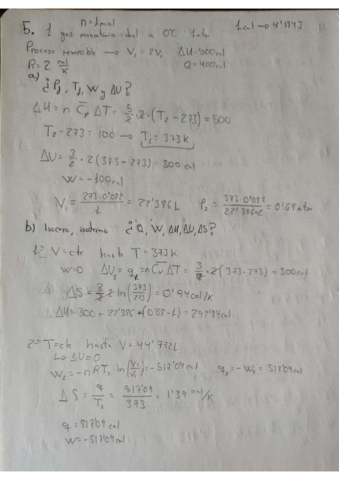 n=1mol
5. 1 gas monoatómico ideal a 0ºC 1atm 1cal → 4'1843
Proceso reversible → V₂ = 2V₁ ΔH=500cal
R= 2 cal/K Q=400cal
a) ¿P₂, T₂, W y ΔU?
ΔH = n C̄p ΔT = 5/2 · 2 · (T₂ - 273) = 500
T₂ - 273 = 100 → T₂ = 373K
ΔU = 3/2 · 2 (373-273) = 300 cal
W = -100cal
V₁ = 273·0'082/1 = 22'386L P₂ = 373·0'082/22'386·2 = 0'68 atm
b) ¿Q, W, ΔU, ΔH, ΔS?
1º V=cte hasta T=373K
W=0 ΔU = q = n C̄v ΔT = 3/2 · 2 (373-273) = 300cal
ΔS = 3/2 · 2 · ln(373/273) = 0'94cal/K
2º T=cte hasta V=44'772L
↳ ΔU=0
W₂ = -nRT₂ ln(V₂/V₁) = -517'09cal q₂ = -W₂ = 517'09cal
ΔS = q/T₂ = 517'09/373 = 1'39 cal/K
q = 817'09cal
W = -517'09cal